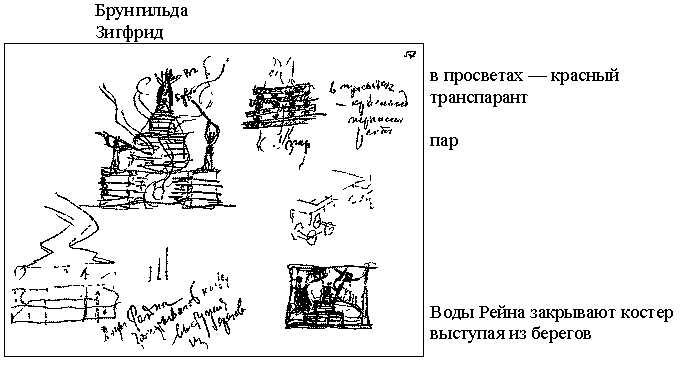 Брунгильда
Зигфрид
57
Бр
Зигфр
в просветах
— красный
транспарант
пар
Воды Рейна
закрывают костер
выступая
из берегов
в просветах — красный
транспарант
пар
Воды Рейна закрывают костер
выступая из берегов